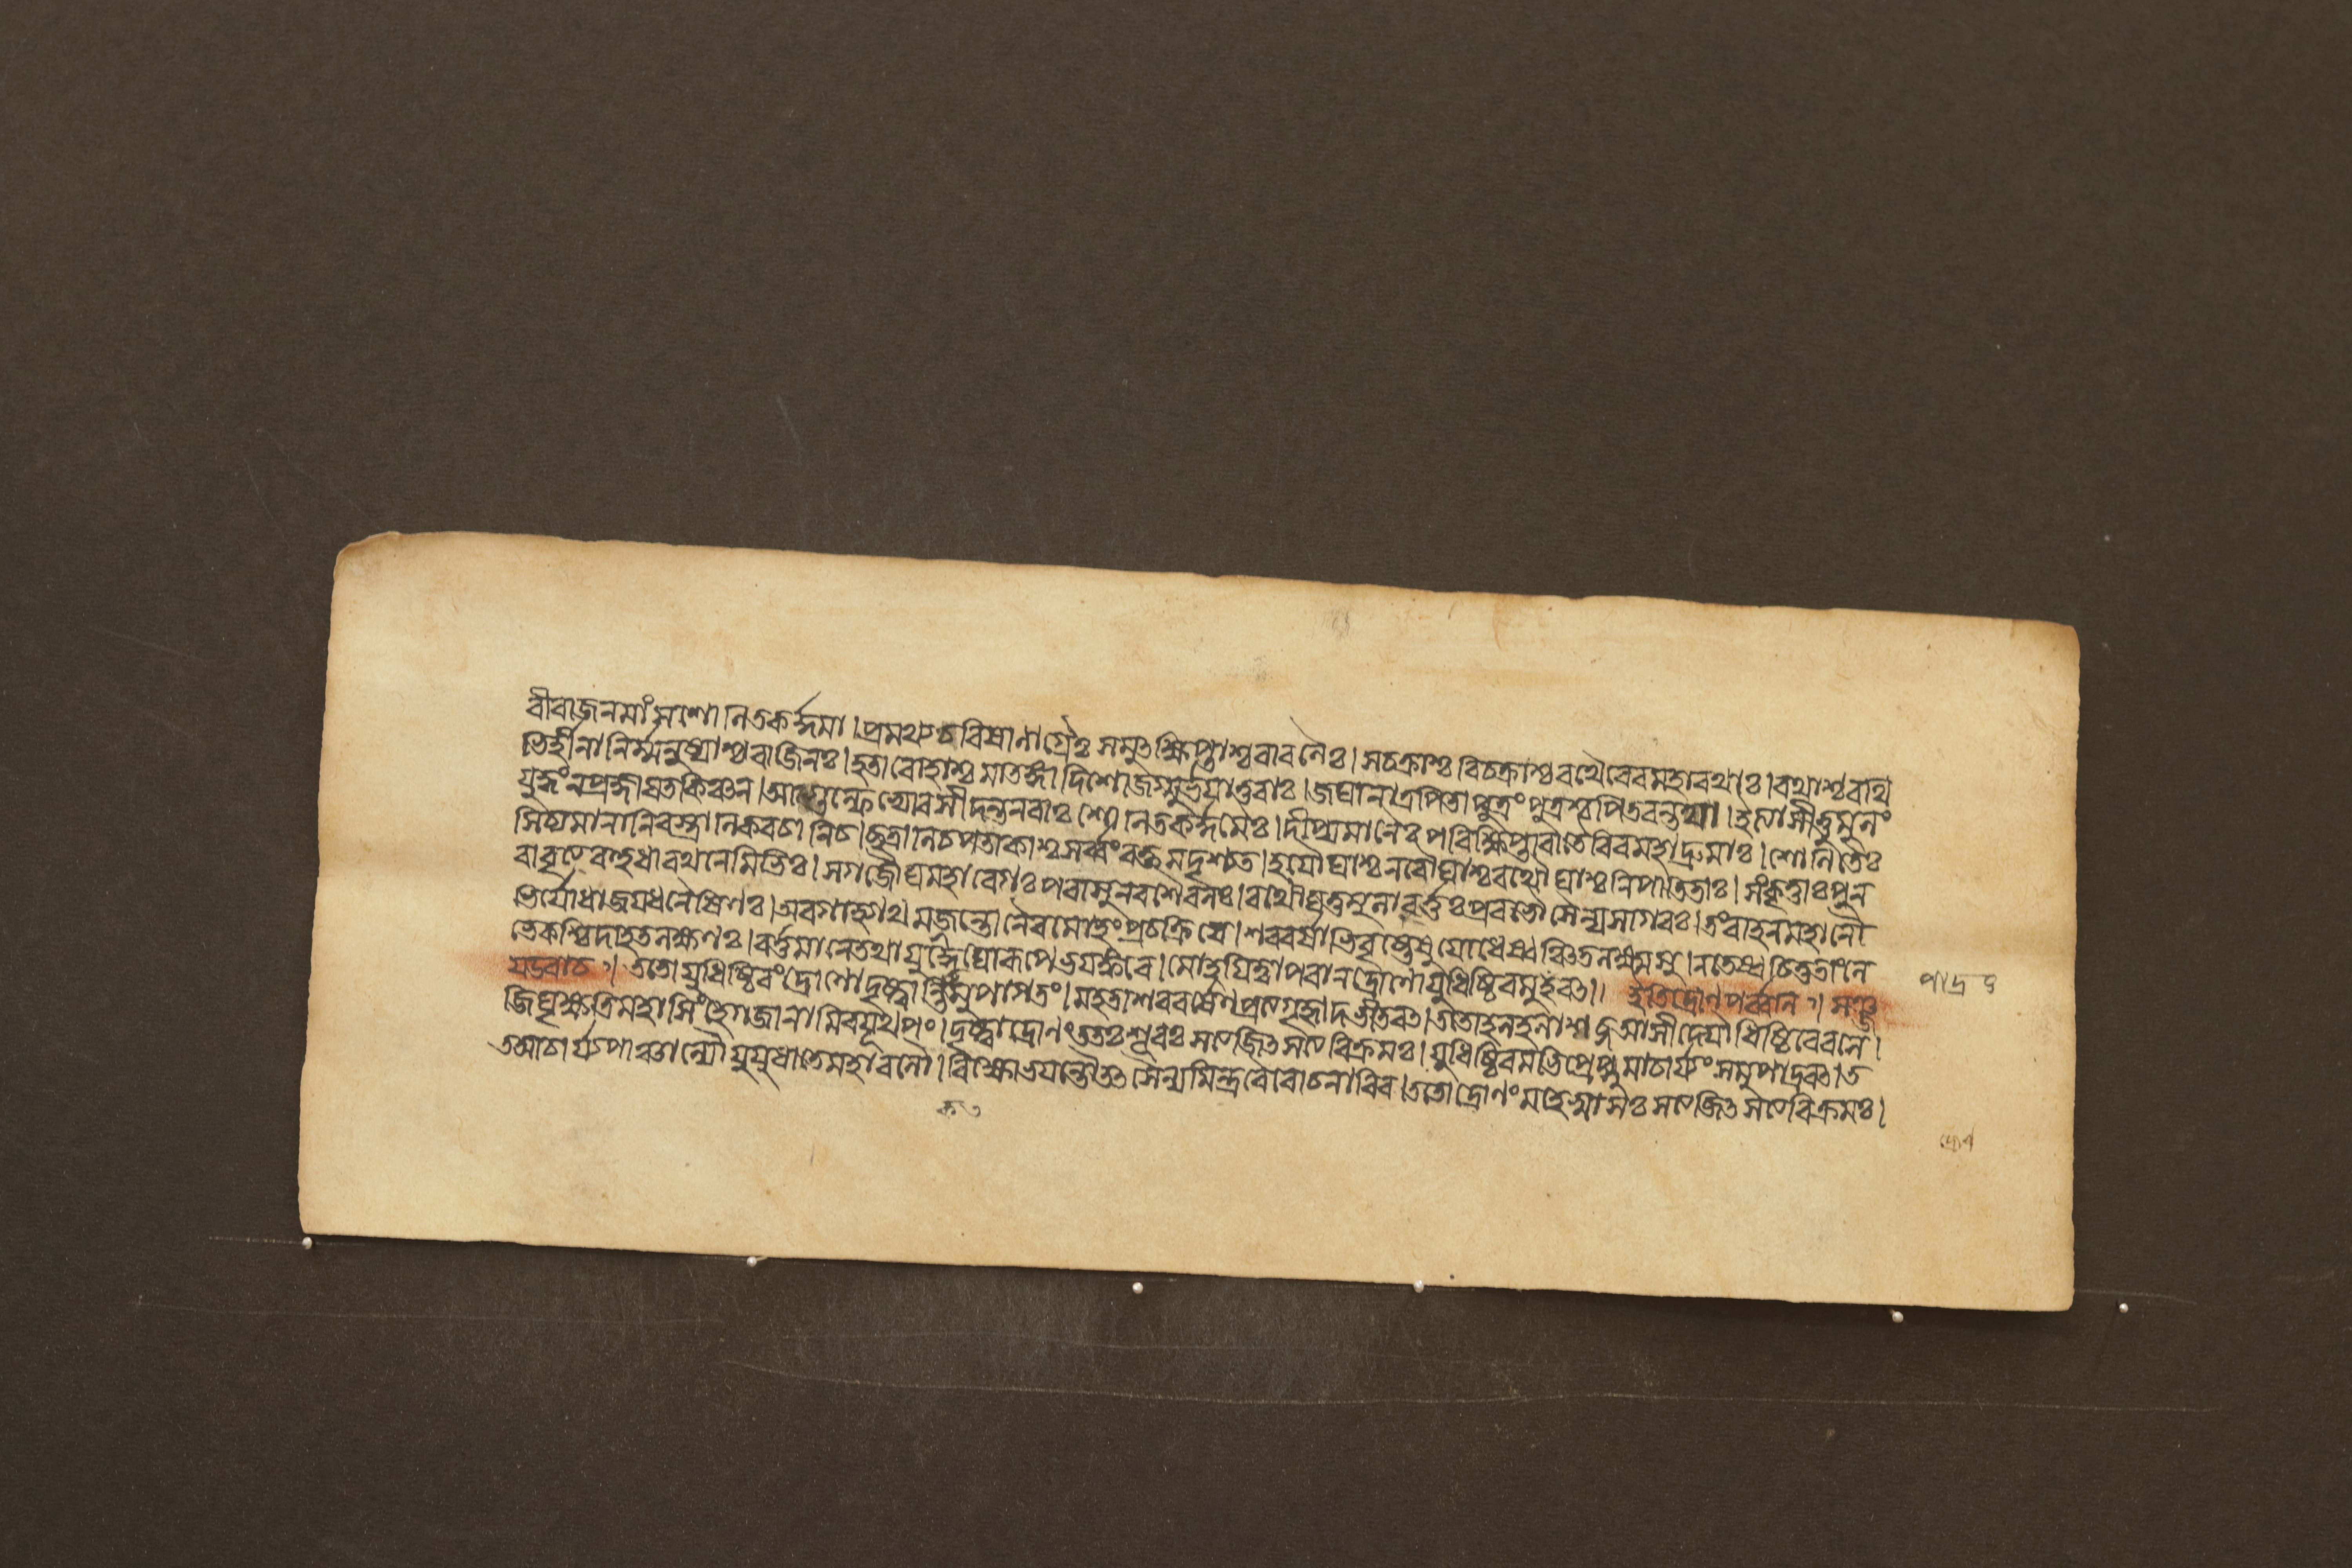 বীবাজনমাংসশোনিতকর্দ্দমা। প্রমথ্যচবিষানাগ্রৈঃ সমুৎক্ষিপ্তাশ্ববাবনৈঃ। সচক্রাশ্চ বিচক্রাশ্চবথৈবেবমহাবথাঃ। বথাশ্চবথি
ভির্হীনানির্ম্মনুষ্যাশ্চবাজিনঃ। হতাবোহাশ্চ মাতঙ্গা দিশোজগ্মুর্ভয়াতুবাঃ। জঘানাত্রপিতাপুত্রং পুত্রশ্চপিতবন্তথা। ইত্যাসীত্তুমুলং
যুদ্ধংনপ্রজ্ঞাযতকিঞ্চন। আগুল্ফেভ্যোবসীদন্তনবাঃ শোনিতকর্দ্দমৈঃ। দীপ্যমানৈঃ পবিক্ষিপ্তাবাতৈবিবমহাদ্রুমাঃ। শোনিতৈঃ
সিচ্যমানানিবস্ত্রানিকবচানিচ। ছত্রানিচপতাকাশ্চসর্ব্বংবক্তমদৃশ্যত। হযৌঘাশ্চনবৌঘাশ্চবথৌঘাশ্চনিপাতিতাঃ। সংবৃত্তাঃপুন
বাবৃত্যবহুধাবথনেমিভিঃ। সগজৌঘমহাবেগঃ পবাসুনবশৈবলঃ। বথৌঘতুমুলাবর্ত্তঃপ্রবভৌসৈন্যসাগবঃ। তংবাহনমহানৌ
ভির্যোধাজযধনৈষিণঃ। অবগাহ্যাথ মজ্জন্তোনৈবমোহংপ্রচক্রিযে। শববর্ষাভিবৃষ্টেষুযোধেষ্বঞ্চিতলক্ষ্মসু। নতেষ্বচিত্ততাংলে
ভেকশ্চিদাহতলক্ষণঃ। বর্ত্তমানেতথাযুদ্ধেঘোবরূপেভযঙ্কবে। মোহযিত্বাপবানদ্রোণোযুধিষ্ঠিবমুপাদ্রবৎ॥ ইতিদ্রোণপর্ব্বনি॥ সঞ্জ
যউবাচ॥ ততোযুধিষ্ঠিবংদ্রোণোদৃষ্ট্বান্তিকমুপাগতং। মহতাশববর্ষেণপ্রত্যগৃহ্লাদভীতবৎ। ততোহলহলাশব্দআসীদ্যৌধিষ্ঠিবেবলে।
জিঘৃক্ষতিমহাসিংহেগজানামিবযূথপং। দৃষ্ট্বাদ্রোণংততঃশূবঃ সত্যজিৎসত্যবিক্রমঃ। যুধিষ্ঠিবমভিপ্রেপ্সুমাচার্য্যংসমুপাদ্রবৎ। ত
তআচার্য্যপাঞ্চাল্যৌযুযুধাতেমহাবলৌ। বিক্ষোভযন্তৌতৎসৈন্যমিন্দ্রবৈবোচনাবিব। ততোদ্রোণংমহেষ্বাসঃ সত্যজিৎসত্যবিক্রমঃ।